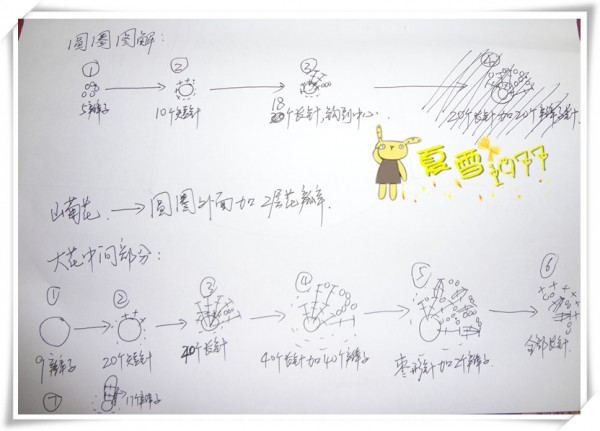 圆圈图解:
① ② ③ ④
5辫子 10个短针 18个长针,钩到中心. 20个长针加20个辫子针.
夏雪
山菊花 → 圆圈外面加2层花瓣.
大花中间部分:
① ② ③ ④ ⑤ ⑥
9辫子 20个短针 20个长针 40个长针加40个辫子 枣形针加2个辫子. 全部长针.
⑦ 17个辫子